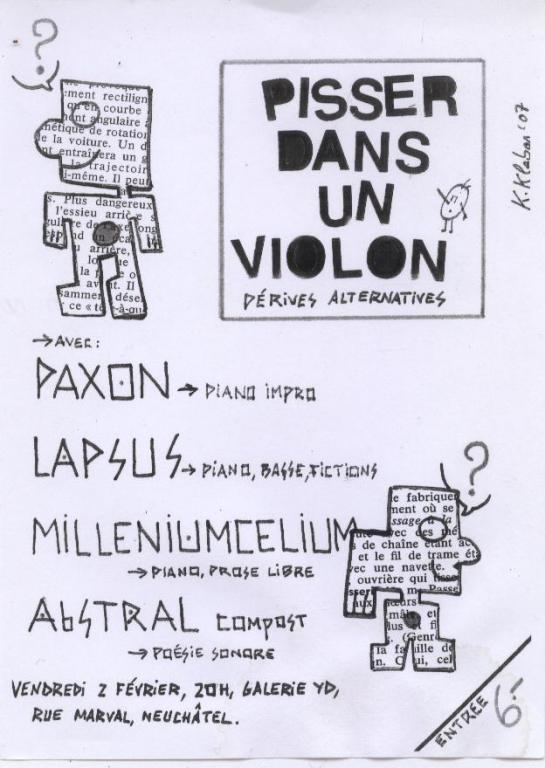 ?
ment rectilign
en courbe
ent angulaire
métique de rotation
e la voiture. Un d
nt entraînera un
la trajectoir
i-même. Il peut
s. Plus dangereux
l'essieu arrière s
lo
la
avant. Il
sammen dése
PISSER
DANS
UN
VIOLON
DÉRIVES ALTERNATIVES
K. Klaban '07
→AVEC:
PAXON → PIANO IMPRO
LAPSUS → PIANO, BASSE, FICTIONS
MILLENIUMCELIUM
→ PIANO, PROSE LIBRE
AbSTRAL COMPOST
→ POÉSIE SONORE
?
e fabrique
ment où se
ssage à la
avec des mé
s de chaîne étant ac
et le fil de trame ét
vec une navette.
ouvrière qui tisse
Passe
aux sœurs
et
lus fi
(Genr
la famille de
n. C ui, cel
VENDREDI 2 FÉVRIER, 20H, GALERIE YD,
RUE MARVAL, NEUCHÂTEL.
ENTRÉE 6.-